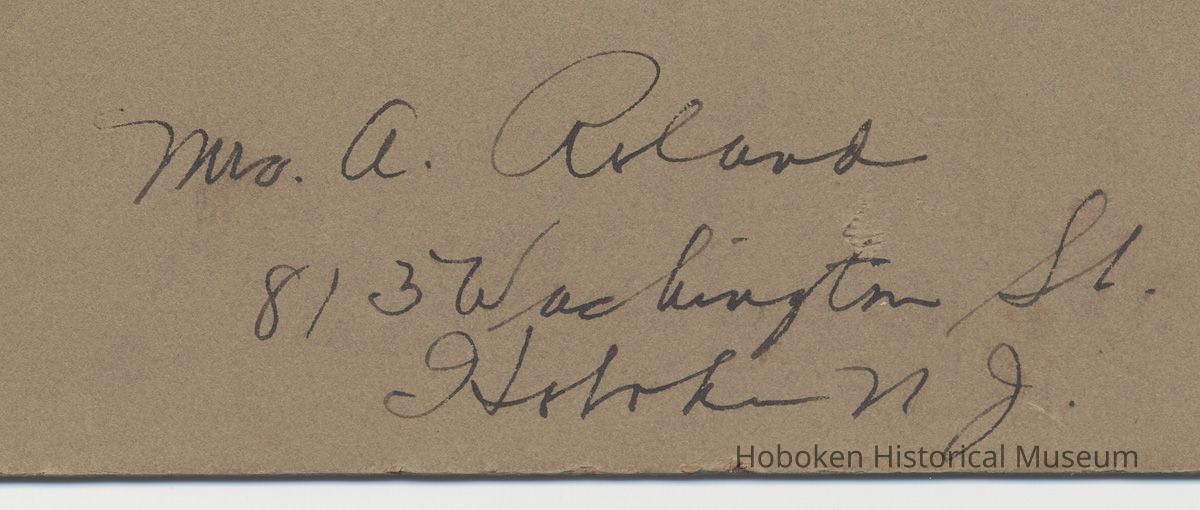 Mrs. A. Roland
813 Washington St.
Hoboken N J.
Hoboken Historical Museum